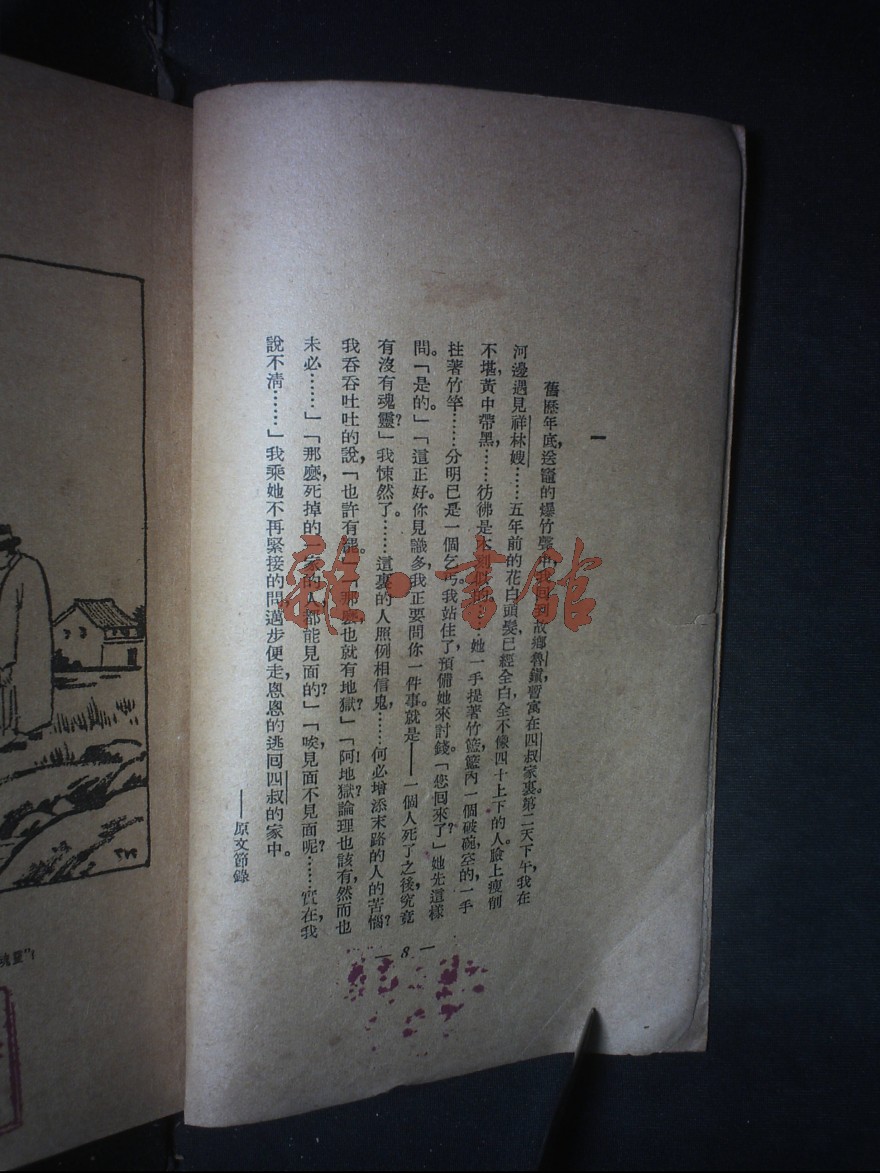 一
舊歷年底,送竈的爆竹聲中,我回到故鄉魯鎮,暫寓在四叔家裏。第二天下午,我在
河邊遇見祥林嫂……五年前的花白頭髮,已經全白,全不像四十上下的人;臉上瘦削
不堪,黃中帶黑……彷彿是木刻似的……她一手提著竹籃,籃內一個破碗,空的;一手
拄著竹竿……分明已是一個乞丐。我站住了,預備她來討錢。「您回來了?」她先這樣
問。「是的。」「這正好。你見識多,我正要問你一件事,就是——一個人死了之後,究竟
有沒有魂靈?」我悚然了。……這裏的人照例相信鬼,……何必增添末路的人的苦惱?
我吞吞吐吐的說,「也許有罷。」「那麼,也就有地獄?」「阿!地獄?論理也該有,然而也
未必……」「那麼,死掉的一家的人,都能見面的?」「唉,見面不見面呢?……實在,我
說不清……」我乘她不再緊接的問,邁步便走,悤悤的逃回四叔的家中。
——原文節錄
— 8 —
雜·書館
魂靈"!